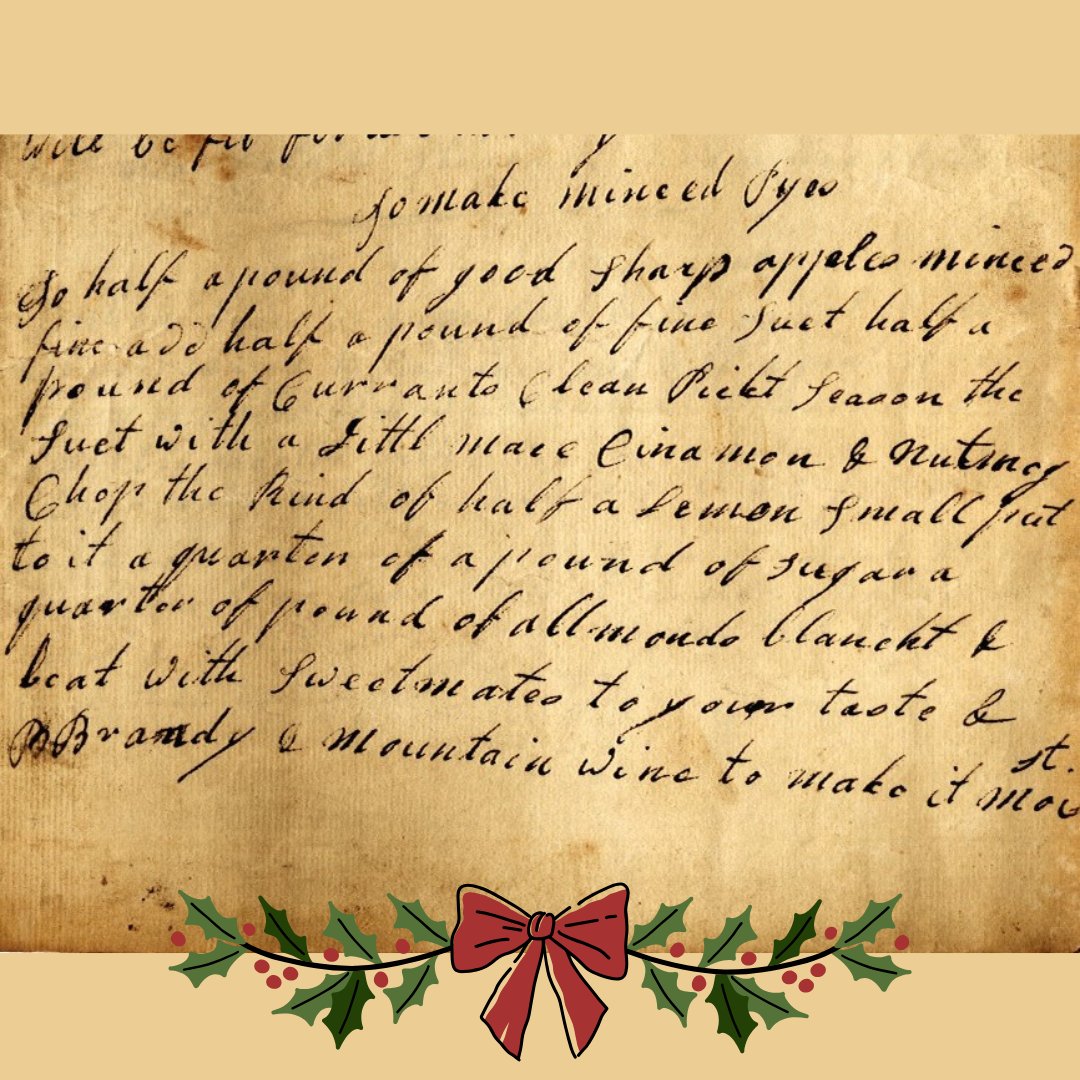 will be fit for
To make minced Pyes
To half a pound of good Sharp apples minced
fine add half a pound of fine Suet half a
pound of Currants Clean Pickt Season the
Suet with a Littl mace Cinamon & Nutmeg
Chop the Rind of half a Lemon Small put
to it a quarter of a pound of sugar a
quarter of pound of allmonds blancht &
beat with Sweetmates to your taste &
Brandy & mountain wine to make it moist.